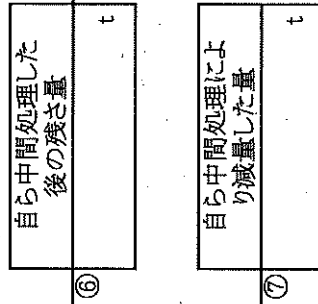 自ら中間処理した
後の残さ量
t
⑥
自ら中間処理によ
り減量した量
t
⑦